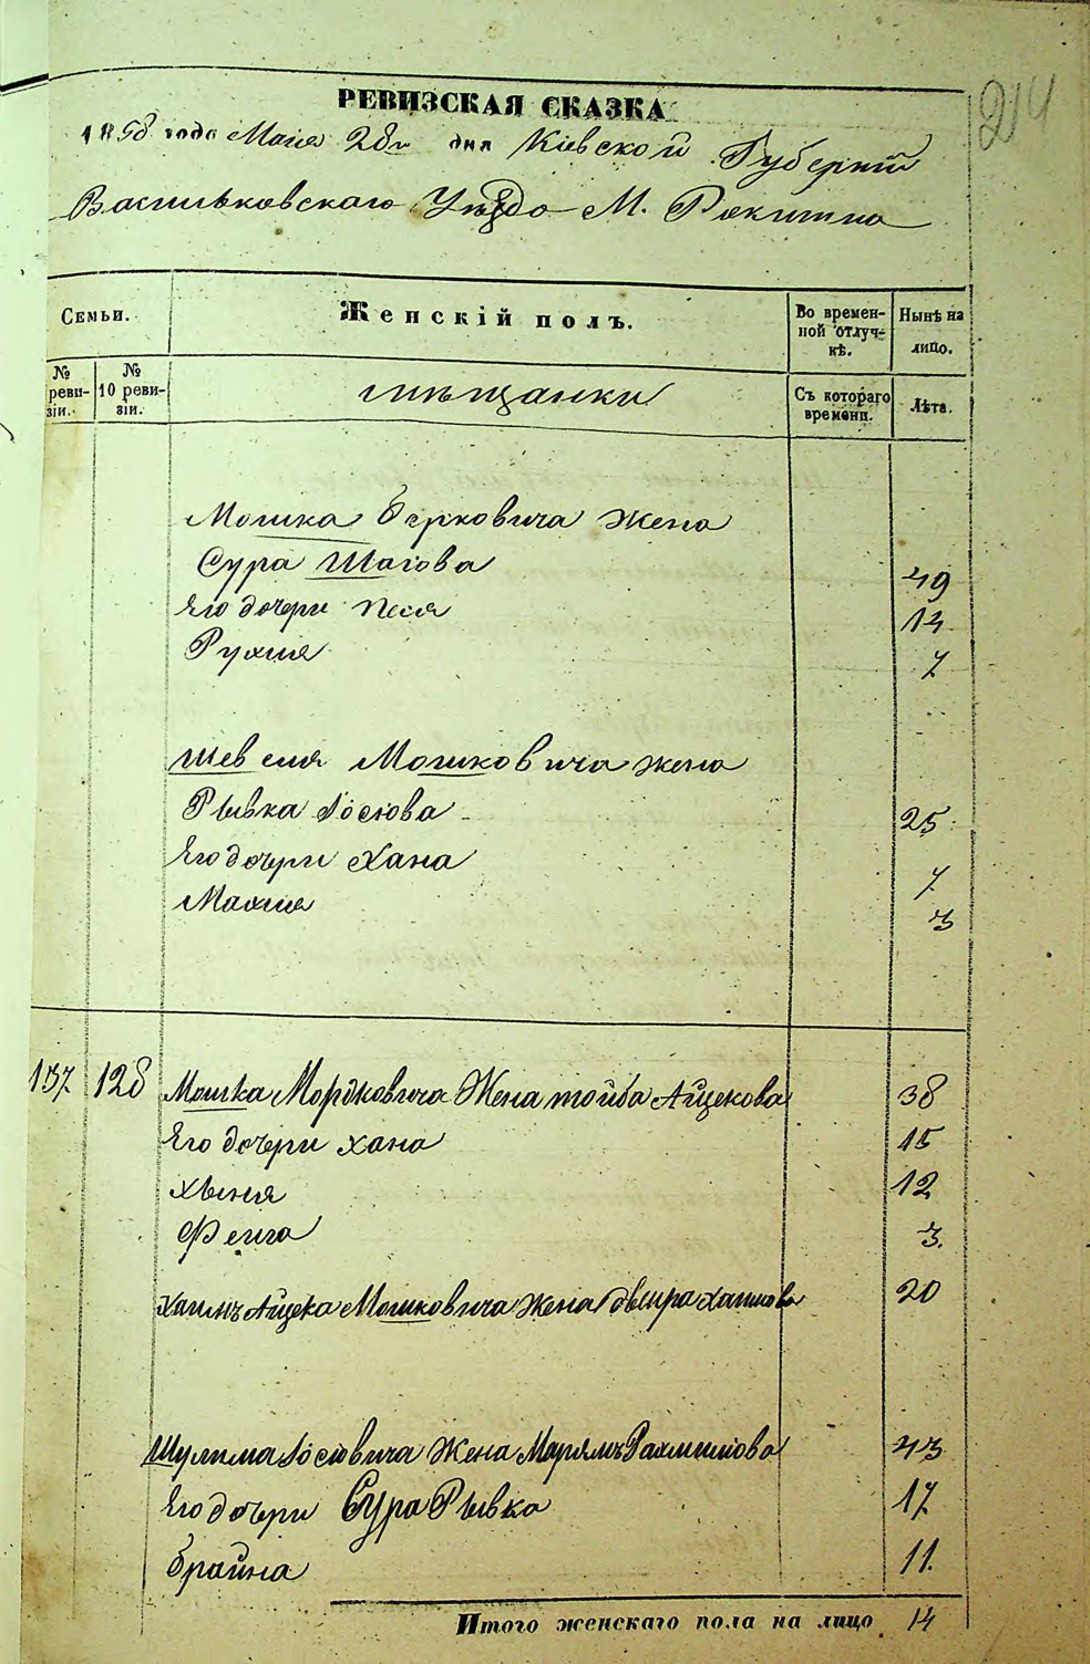 214
РЕВИЗСКАЯ СКАЗКА
1858 года Маія 28го дня Кіевской Губерніи
Васильковскаго Уѣзда М. Ракитна
Семьи. Женскій полъ. Во времен-ной отлуч-кѣ. Нынѣ на лицо.
№ реви-зіи. № 10 реви-зіи. мѣщанки Съ котораго времени. Лѣта.
Мошка Берковича жена
Сура Шагова 49
Его дочери Песя 14
Рухля 7
Шевеля Мошковича жена
Рывка Іосіова 25
Его дочери Хана 7
Махля 3
137 128 Мошка Мордковича Жена тойба Айцекова 38
Его дочери хана 15
хвеня 12
Фейга 3.
Хаимъ Айцека Мошковича жена двейра хаимова 20
Шулима Іосіовича Жена Марямъ Рахмилiова 43
Его дочери Сура Рывка 17
Брайна 11.
Итого женскаго пола на лицо 14